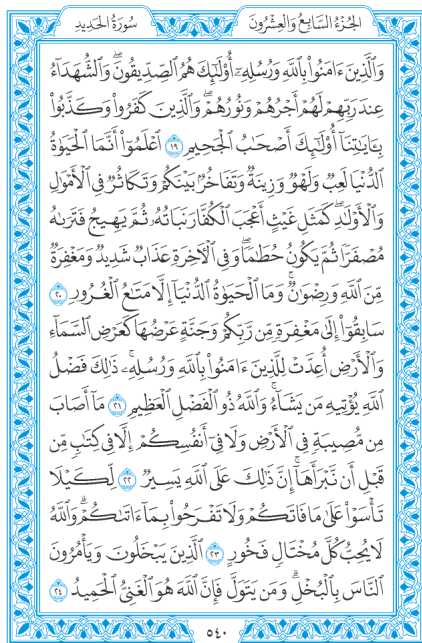 الجُزْءُ السَّابِعُ وَالعِشْرُونَ سُورَةُ الحَدِيدِ
وَالَّذِينَ ءَامَنُوا۟ بِٱللَّهِ وَرُسُلِهِۦٓ أُو۟لَٰٓئِكَ هُمُ ٱلصِّدِّيقُونَۖ وَٱلشُّهَدَآءُ
عِندَ رَبِّهِمْ لَهُمْ أَجْرُهُمْ وَنُورُهُمْۖ وَٱلَّذِينَ كَفَرُوا۟ وَكَذَّبُوا۟
بِـَٔايَٰتِنَآ أُو۟لَٰٓئِكَ أَصْحَٰبُ ٱلْجَحِيمِ ١٩ ٱعْلَمُوٓا۟ أَنَّمَا ٱلْحَيَوٰةُ
ٱلدُّنْيَا لَعِبٌ وَلَهْوٌ وَزِينَةٌ وَتَفَاخُرٌۢ بَيْنَكُمْ وَتَكَاثُرٌ فِى ٱلْأَمْوَٰلِ
وَٱلْأَوْلَٰدِۖ كَمَثَلِ غَيْثٍ أَعْجَبَ ٱلْكُفَّارَ نَبَاتُهُۥ ثُمَّ يَهِيجُ فَتَرَىٰهُ
مُصْفَرًّا ثُمَّ يَكُونُ حُطَٰمًاۖ وَفِى ٱلْـَٔاخِرَةِ عَذَابٌ شَدِيدٌ وَمَغْفِرَةٌ
مِّنَ ٱللَّهِ وَرِضْوَٰنٌۚ وَمَا ٱلْحَيَوٰةُ ٱلدُّنْيَآ إِلَّا مَتَٰعُ ٱلْغُرُورِ ٢٠
سَابِقُوٓا۟ إِلَىٰ مَغْفِرَةٍ مِّن رَّبِّكُمْ وَجَنَّةٍ عَرْضُهَا كَعَرْضِ ٱلسَّمَآءِ
وَٱلْأَرْضِ أُعِدَّتْ لِلَّذِينَ ءَامَنُوا۟ بِٱللَّهِ وَرُسُلِهِۦۚ ذَٰلِكَ فَضْلُ
ٱللَّهِ يُؤْتِيهِ مَن يَشَآءُۚ وَٱللَّهُ ذُو ٱلْفَضْلِ ٱلْعَظِيمِ ٢١ مَآ أَصَابَ
مِن مُّصِيبَةٍ فِى ٱلْأَرْضِ وَلَا فِىٓ أَنفُسِكُمْ إِلَّا فِى كِتَٰبٍ مِّن
قَبْلِ أَن نَّبْرَأَهَآۚ إِنَّ ذَٰلِكَ عَلَى ٱللَّهِ يَسِيرٌ ٢٢ لِّكَيْلَا
تَأْسَوْا۟ عَلَىٰ مَا فَاتَكُمْ وَلَا تَفْرَحُوا۟ بِمَآ ءَاتَىٰكُمْۗ وَٱللَّهُ
لَا يُحِبُّ كُلَّ مُخْتَالٍ فَخُورٍ ٢٣ ٱلَّذِينَ يَبْخَلُونَ وَيَأْمُرُونَ
ٱلنَّاسَ بِٱلْبُخْلِۗ وَمَن يَتَوَلَّ فَإِنَّ ٱللَّهَ هُوَ ٱلْغَنِىُّ ٱلْحَمِيدُ ٢٤
٥٤٠